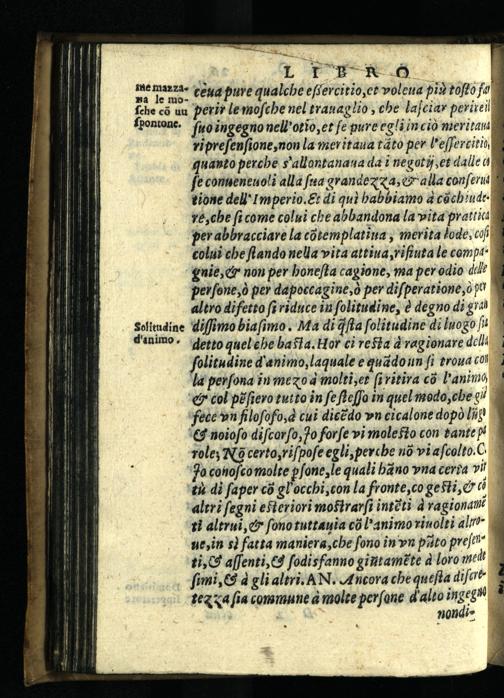 LIBRO
me mazza-
na le mo-
sche cõ uu
spontone.
ceua pure qualche eßercitio, et voleua più tosto far
perir le mosche nel trauaglio, che lasciar perire il
suo ingegno nell'otio, et se pure egli in ciò meritaua
ripresensione, non la meritaua tãto per l'essercitio,
quanto perche s'allontanaua da i negotij, et dalle co
se conueneuoli alla sua grandezza, & alla conserua
tione dell'Imperio. Et di quì habbiamo à cõchiude-
re, che si come colui che abbandona la vita prattica
per abbracciare la cõtemplatiua, merita lode, così
colui che stando nella vita attiua, rifiuta le compa-
gnie, & non per honesta cagione, ma per odio delle
persone, ò per dapoccagine, ò per disperatione, ò per
altro difetto si riduce in solitudine, è degno di gran
dissimo biasimo. Ma di q̃sta solitudine di luogo sia
detto quel che basta. Hor ci resta à ragionare della
Solitudine
d'animo.
solitudine d'animo, laquale e quãdo un si troua con
la persona in mezo à molti, et si ritira cõ l'animo,
& col pẽsiero tutto in se stesso in quel modo, che già
fece vn filosofo, à cui dicẽdo vn cicalone dopò lũgo
& noioso discorso, Io forse vi molesto con tante pa
role; Nõ certo, rispose egli, perche nõ vi ascolto. C.
Io conosco molte psone, le quali hãno vna certa vir
tù di saper cõ gl'occhi, con la fronte, co gesti, & cõ
altri segni esteriori mostrarsi intẽti à ragionamẽ
ti altrui, & sono tuttauia cõ l'animo riuolti altro-
ue, in sì fatta maniera, che sono in vn pũto presen-
ti, & assenti, & sodisfanno giũtamẽte à loro mede
simi, & à gli altri. AN. Ancora che questa discre-
tezza sia commune à molte persone d'alto ingegno
nondi-